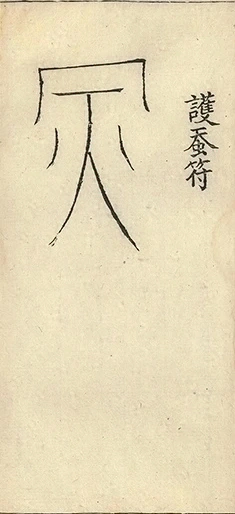 護蚕符